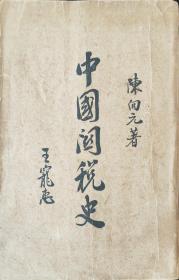 陳向元著
中國関稅史
王寵惠